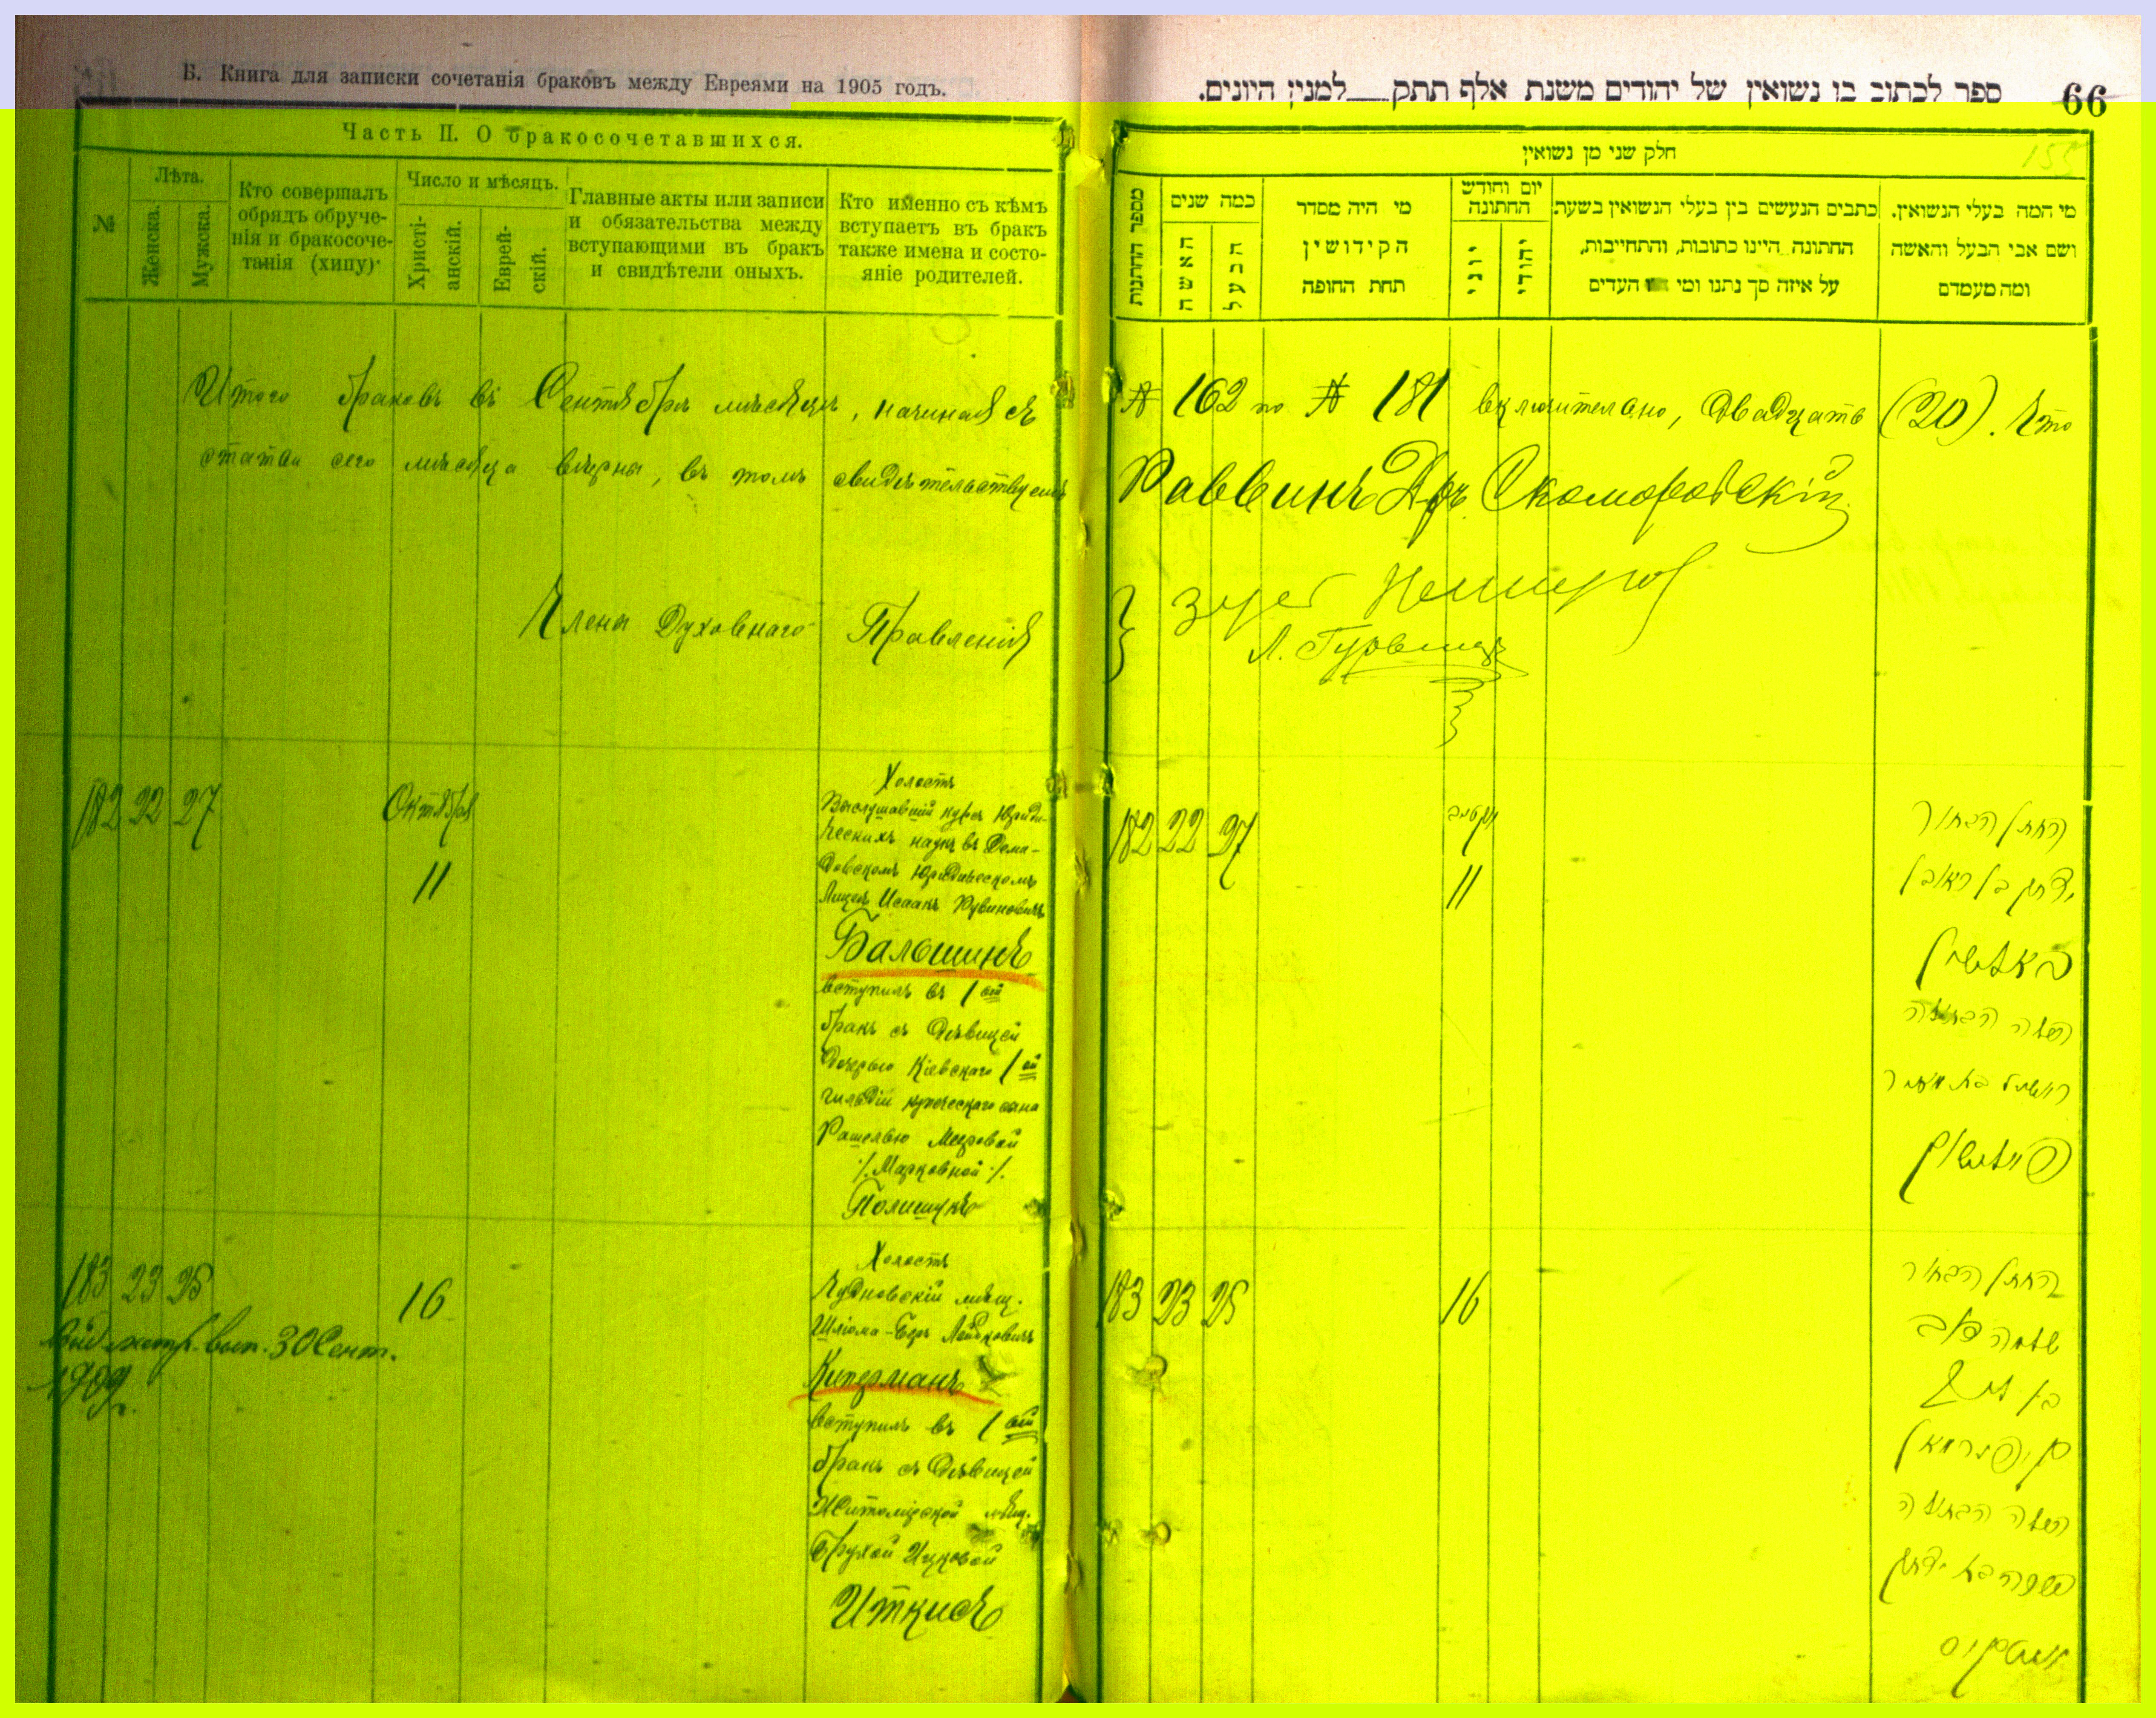 Б. Книга для записки сочетанія браковъ между Евреями на 1905 годъ.
Часть II. О бракосочетавшихся.
№
Лѣта.
Женска.
Мужска.
Кто совершалъ
обрядъ обруче-
нія и бракосоче-
танія (хипу)
Число и мѣсяцъ.
Христі-
анскій.
Еврей-
скій.
Главные акты или записи
и обязательства между
вступающими въ бракъ
и свидѣтели оныхъ.
Кто именно съ кѣмъ
вступаетъ въ бракъ
также имена и состо-
яніе родителей.
66
ספר לכתוב בו נשואין של יהודים משנת אלף תתק למנין היונים.
155
חלק שני מן נשואין
מספר החתונות
כמה שנים
האשה
הבעל
מי היה מסדר
הקידושין
תחת החופה
יום וחודש
החתונה
יוני
יהודי
כתבים הנעשים בין בעלי הנשואין בשעת
החתונה היינו כתובות, והתחייבות,
על איזה סך נתנו ומי העדים
מי המה בעלי הנשואין.
ושם אבי הבעל והאשה
ומה מעמדם
Итого браковъ въ Сентябрѣ мѣсяцѣ, начиная съ № 162 по № 181 включительно, двадцать (20). Что
статьи сего мѣсяца вѣрны, въ томъ свидѣтельствуемъ Раввинъ Др. Скоморовскій
Члены Духовнаго Правленія
Л. Гурвицъ
182 22 27
Октября
11
Холостъ
Выслушавшій курсъ Юриди-
ческихъ наукъ въ Деми-
довскомъ Юридическомъ
Лицеѣ Исаакъ Рувиновичъ
Бальшинъ
вступилъ въ 1ый
бракъ съ дѣвицей
дочерью Кіевскаго 1ой
гильдіи купеческаго сына
Рашелью Мееровой
/. Марковной ./.
Полищукъ
182 22 27
11
החתן הבחור
יצחק בן ראובן
באלשין
עלה הבתולה
פוילשוק
183 23 25
Вид. метр. вып. 30 Сент.
1909 г.
16
Холостъ
Чудновскій мѣщ.
Шлёма-Беръ Лейбовичъ
Киперманъ
вступилъ въ 1ый
бракъ съ дѣвицей
Житомірской мѣщ.
Брухой Ицковой
Иткисъ
183 23 25
16
החתן הבחור
שלמה בער
קיפערמאן
עלה הבתולה
איטקיס